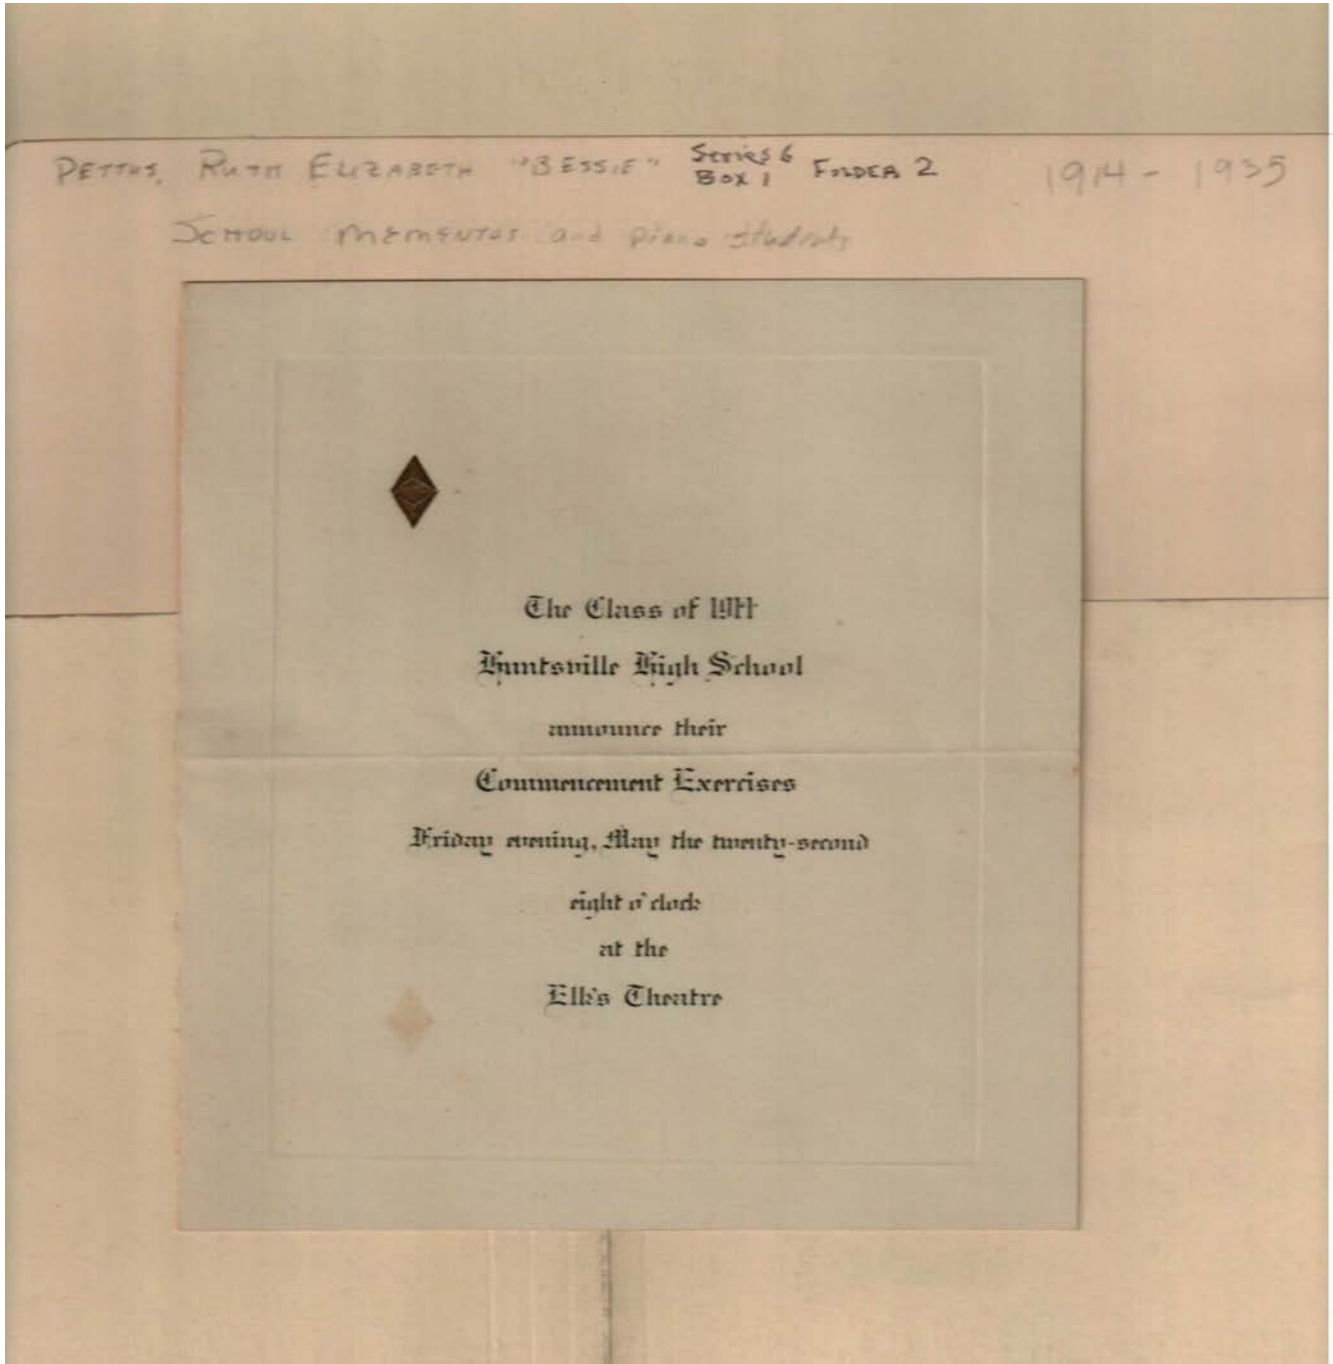 PETTUS, RUTH ELIZABETH "BESSIE" Series 6 Box 1 FOLDER 2 1914 - 1935
SCHOOL MEMENTOS and piano students
The Class of 1914
Huntsville High School
announce their
Commencement Exercises
Friday evening, May the twenty-second
eight o'clock
at the
Elk's Theatre